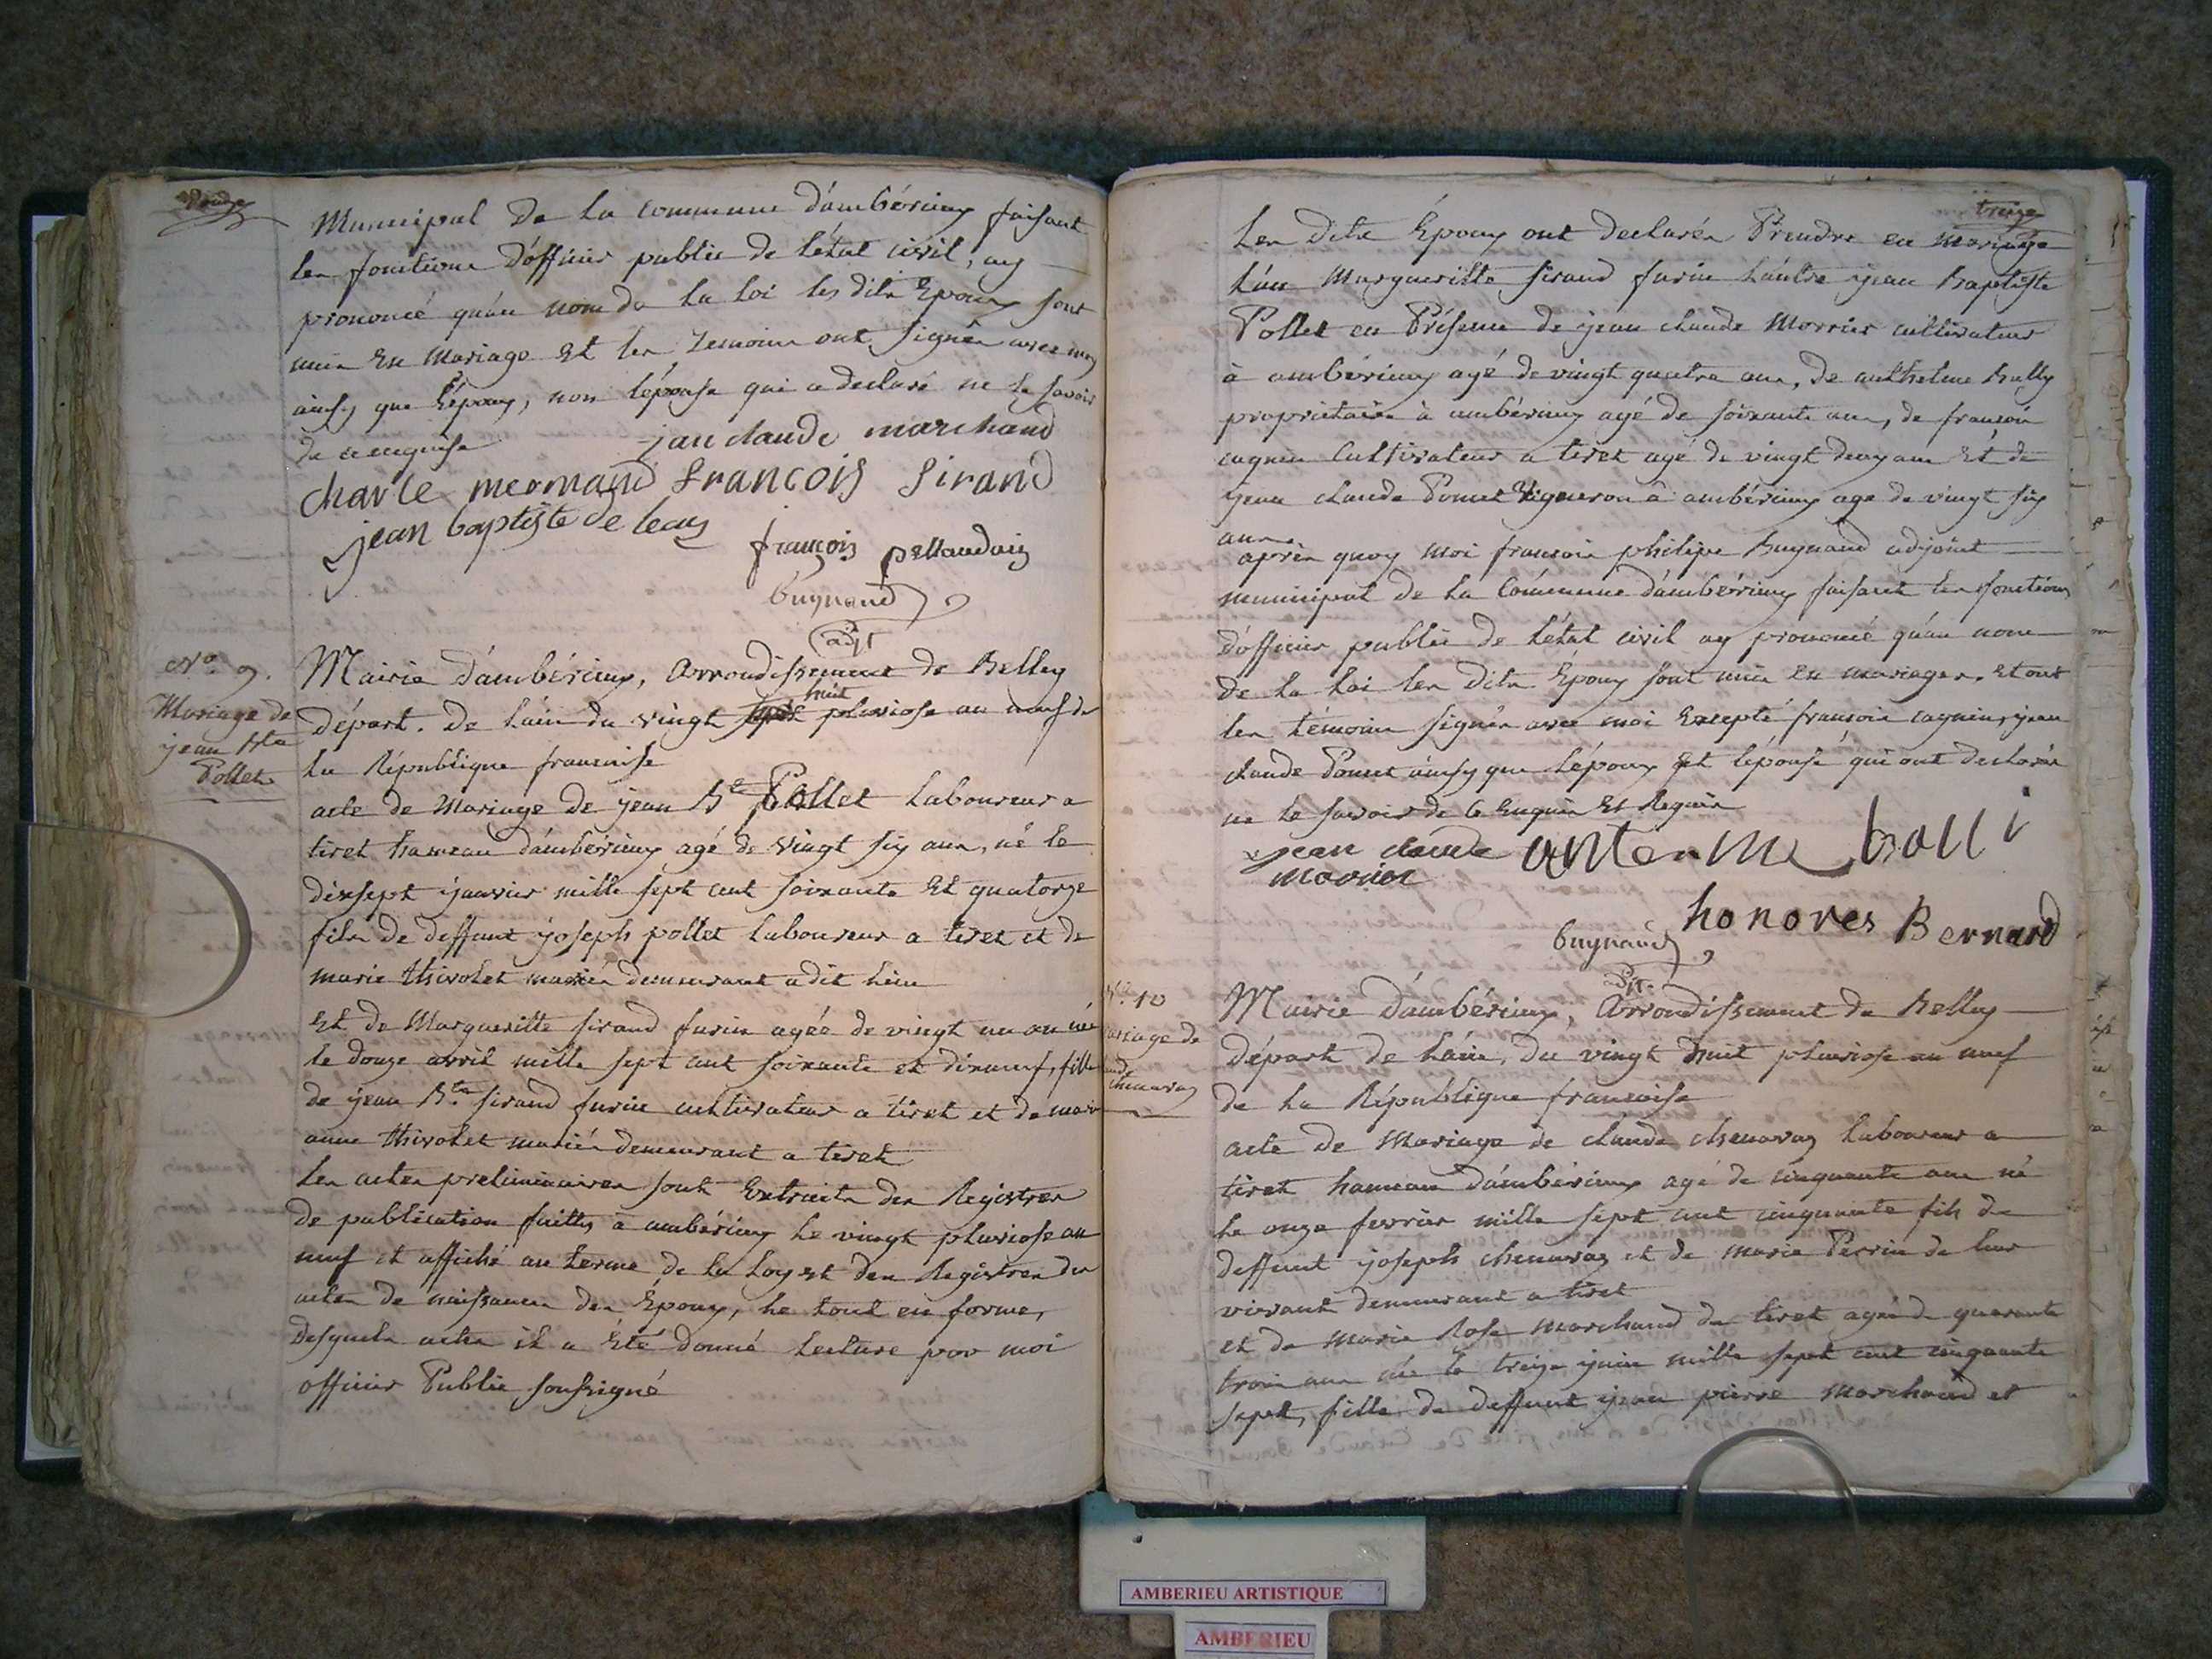 douze
Municipal De La commune D'ambérieux faisant
les fonctions D'officier public de l'état civil, ay
prononcé qu'au nom de la loi les dits Epoux sont
unis En Mariage Et les Temoins ont signés avec moy
ainsy que L'époux, non l'épouse qui a declaré ne le savoir
de ce enquise
jan claude marchand
charle mermand francois Sirand
jean baptiste de leas
francois pellaudain
Bugnand
adjt
No 9.
Mariage de
jean Bte
Pollet
Mairie D'ambérieux, Arrondissement de Belley
départ. De L'ain du vingt huit pluviose an neuf de
La République francaise
acte de Mariage de jean Bte Pollet Laboureur a
tiret hameau d'ambérieux agé de vingt six ans, né le
dixsept janvier mille sept cent soixante Et quatorze
fils de deffunt joseph pollet Laboureur a tiret et de
marie thivolet mariés demeurant a dit lieu
Et de Margueritte sirand furin agée de vingt un an née
le douze avril mille sept cent soixante et dixneuf, fille
de jean Bte sirand furin cultivateur a tiret et de marie
anne thivolet mariés demeurant a tiret
Les actes preliminaires sont Extraits des Registres
de publication faittes à ambérieux le vingt pluviose an
neuf et affiché au terme de la Loy et des Registres des
actes de naissances des Epoux, le tout en forme,
Desquels actes il a Eté donné Lecture par moi
officier Public soussigné
treize
Les Dits Epoux ont declarés Prendre en Mariage
L'un Margueritte sirand furin L'autre jean Baptiste
Pollet en Présence de jean claude Morrier cultivateur
à ambérieux agé de vingt quatre ans, de anthelme Bully
propriétaire à ambérieux agé de soixante ans, de francois
cagnin Cultivateur a tiret agé de vingt deux ans Et de
jean claude Poncet Vigneron à ambérieux age de vingt six
ans.
après quoy moi francois philipe Bugnand adjoint
municipal de La Commune d'ambérieux faisant les fonctions
d'officier public de l'état civil ay prononcé qu'au nom
de la Loi les Dits Epoux sont unis En mariages. Et ont
les témoins signés avec moi Excepté francois cagnin, jean
claude Poncet ainsy que L'époux Et L'épouse qui ont declarés
ne le savoir de ce Enquis Et Requis
jean claude
morier
antenme bolli
honores Bernard
Bugnand
adjt
No 10
mariage de
chenavas
Mairie D'ambérieux, Arrondissement de Belley
départ de L'ain, du vingt huit pluviose an neuf
de La République francaise
acte de Mariage de claude chenavas Laboureur a
tiret hameau d'ambérieux agé de cinquante ans né
le onze fevrier mille sept cent cinquante fils de
deffunt joseph chenavas et de marie Perrin de leur
vivant demeurant a tiret
et de marie Rose Marchand de tiret agée de quarante
trois ans née le treize juin mille sept cent cinquante
sept, fille de deffunt jean pierre Marchand et
AMBERIEU ARTISTIQUE
AMBERIEU